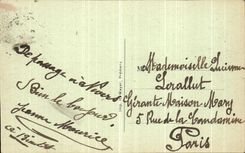 De passage à Nevers
Bien le bonjour
Jeanne Maurice
Mademoiselle Lucienne
Lorallut
Gérante Maison Mary
5 Rue de la Condamine
Paris